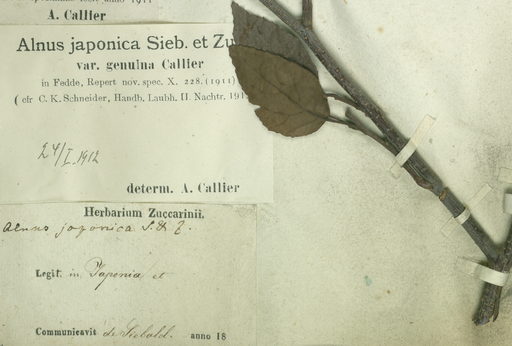 A. Callier
Alnus japonica Sieb. et Zu
var. genuina Callier
in Fedde, Repert nov. spec. X. 228. (1911)
(cfr C. K. Schneider, Handb. Laubh. II. Nachtr. 191
24/I. 1912
determ. A. Callier
Herbarium Zuccarinii.
Alnus japonica S. & Z.
Legit. in Japonia et
Communicavit de Siebold. anno 18